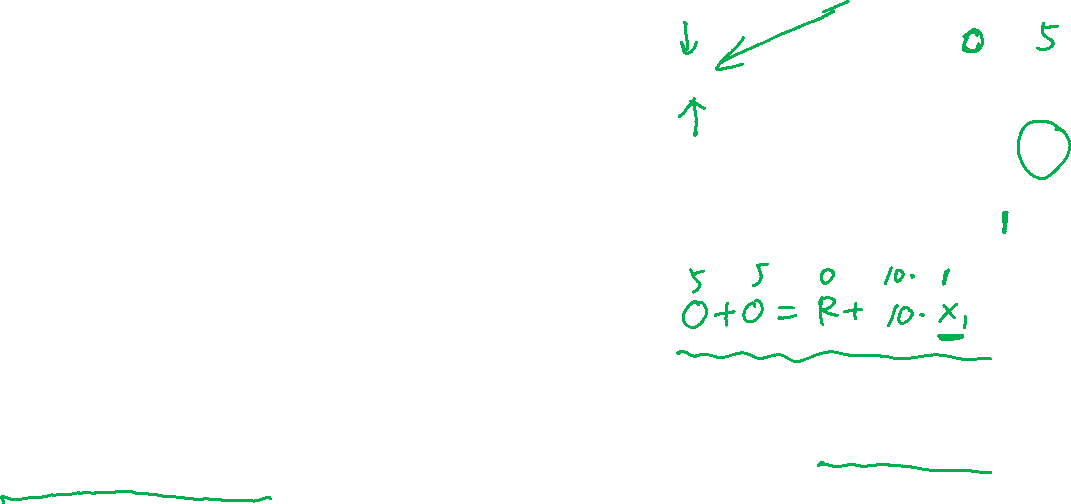 0 5
1
5 5 0 10· 1
O+O=R+ 10·X₁